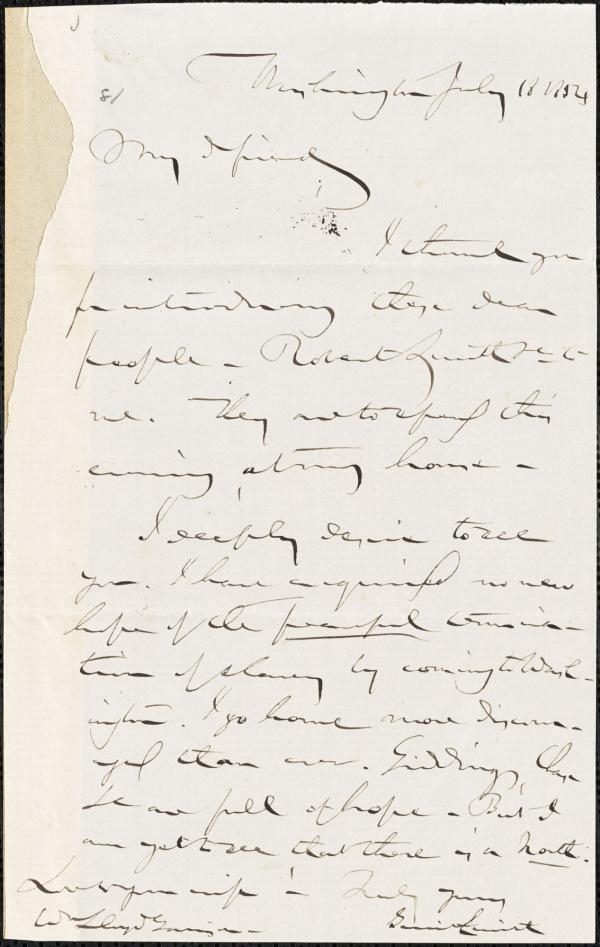 81
Washington July 18 1854
My d friend,
I thank you
for introducing these dear
people – Robert Smith &c to
me. They are to spend this
evening at my house –
I deeply desire to see
you. I have acquired no new
hope of the peaceful termina-
tion of slavery by coming to Wash-
ington. I go home more discour-
aged than ever. Giddings, Chase
&c are full of hope – But I
am yet to see that there is a North.
Love to your wife – Truly yours
Wm Lloyd Garrison – Gerrit Smith